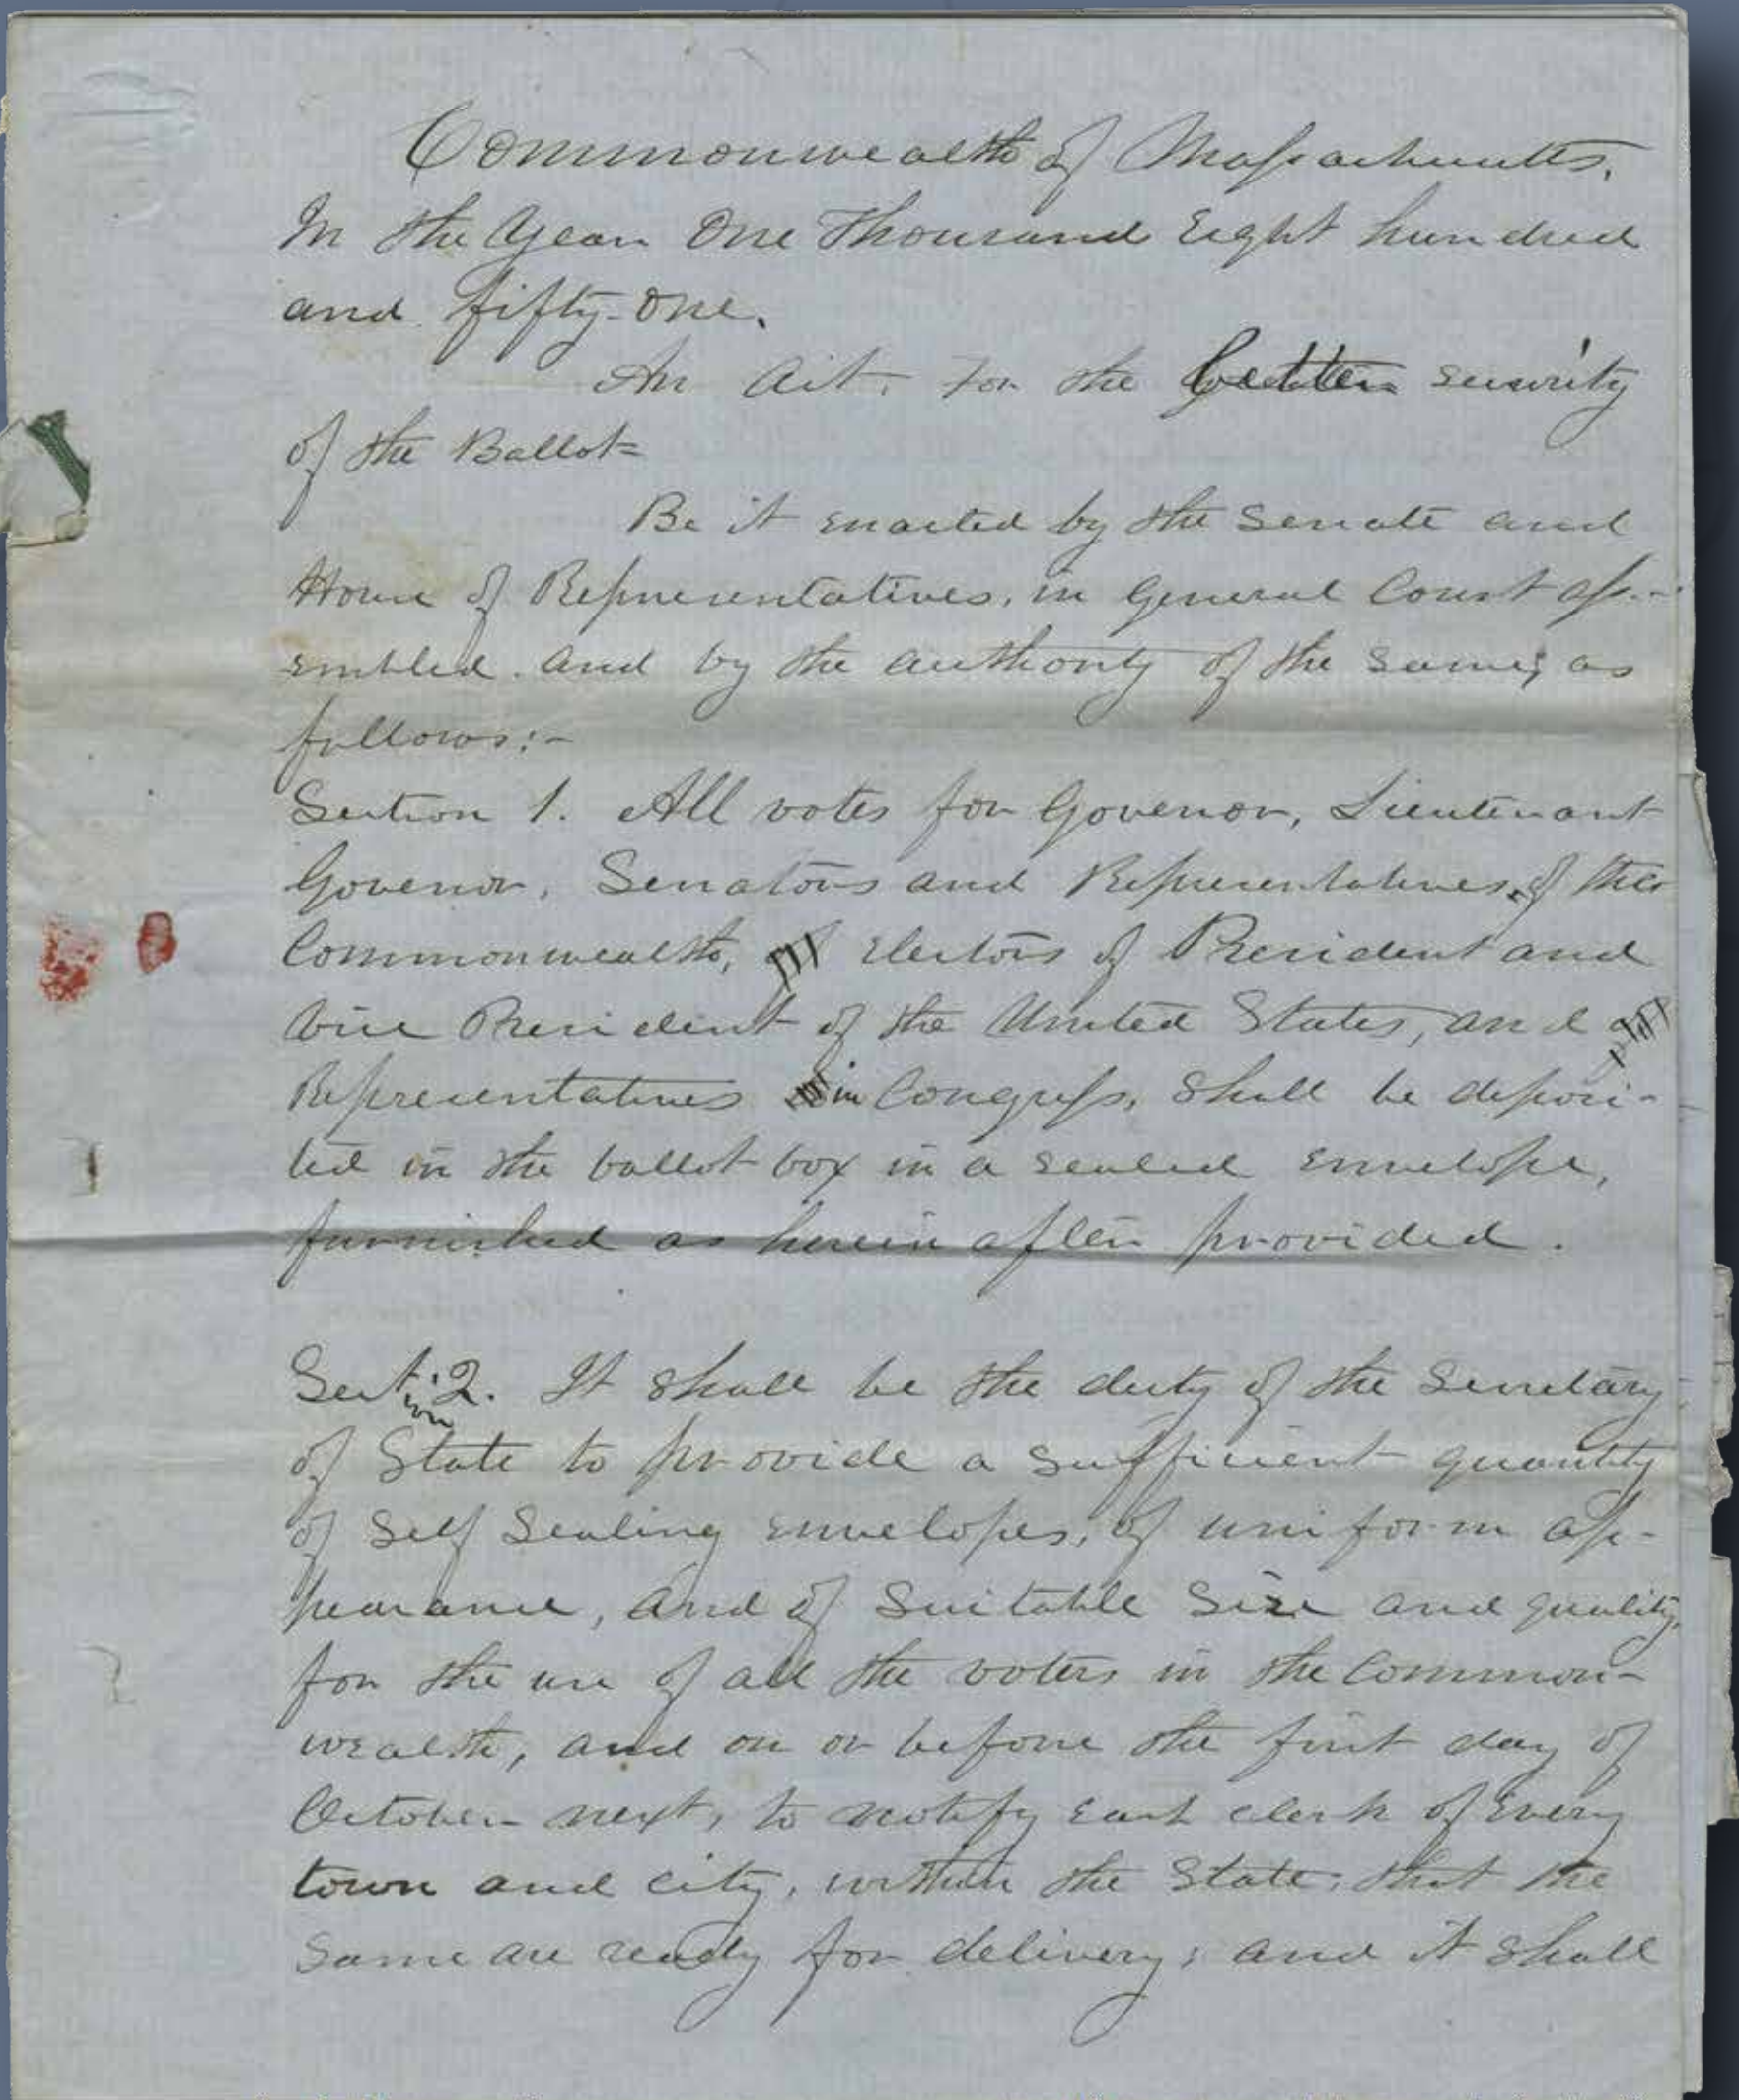 Commonwealth of Massachusetts.
In the Year One Thousand Eight hundred
and fifty-one.
An Act. For the better security
of the Ballot=
Be it enacted by the Senate and
House of Representatives, in General Court ass-
embled. and by the authority of the same, as
follows:-
Section 1. All votes for Govenor, Lieutenant
Govenor, Senators and Representatives, of the
Commonwealth, Electors of President and
Vice President of the United States, and
Representatives in Congress, shall be deposi-
ted in the ballot box in a sealed envelope,
furnished as herein after provided.
Section 2. It shall be the duty of the Secretary
of State to provide a sufficient quantity
of Self Sealing envelopes, of uniform ap-
pearance, and of Suitable Size and quality,
for the use of all the voters in the Common-
wealth, and on or before the first day of
October next, to notify each clerk of every
town and city, within the State, that the
same are ready for delivery; and it shall